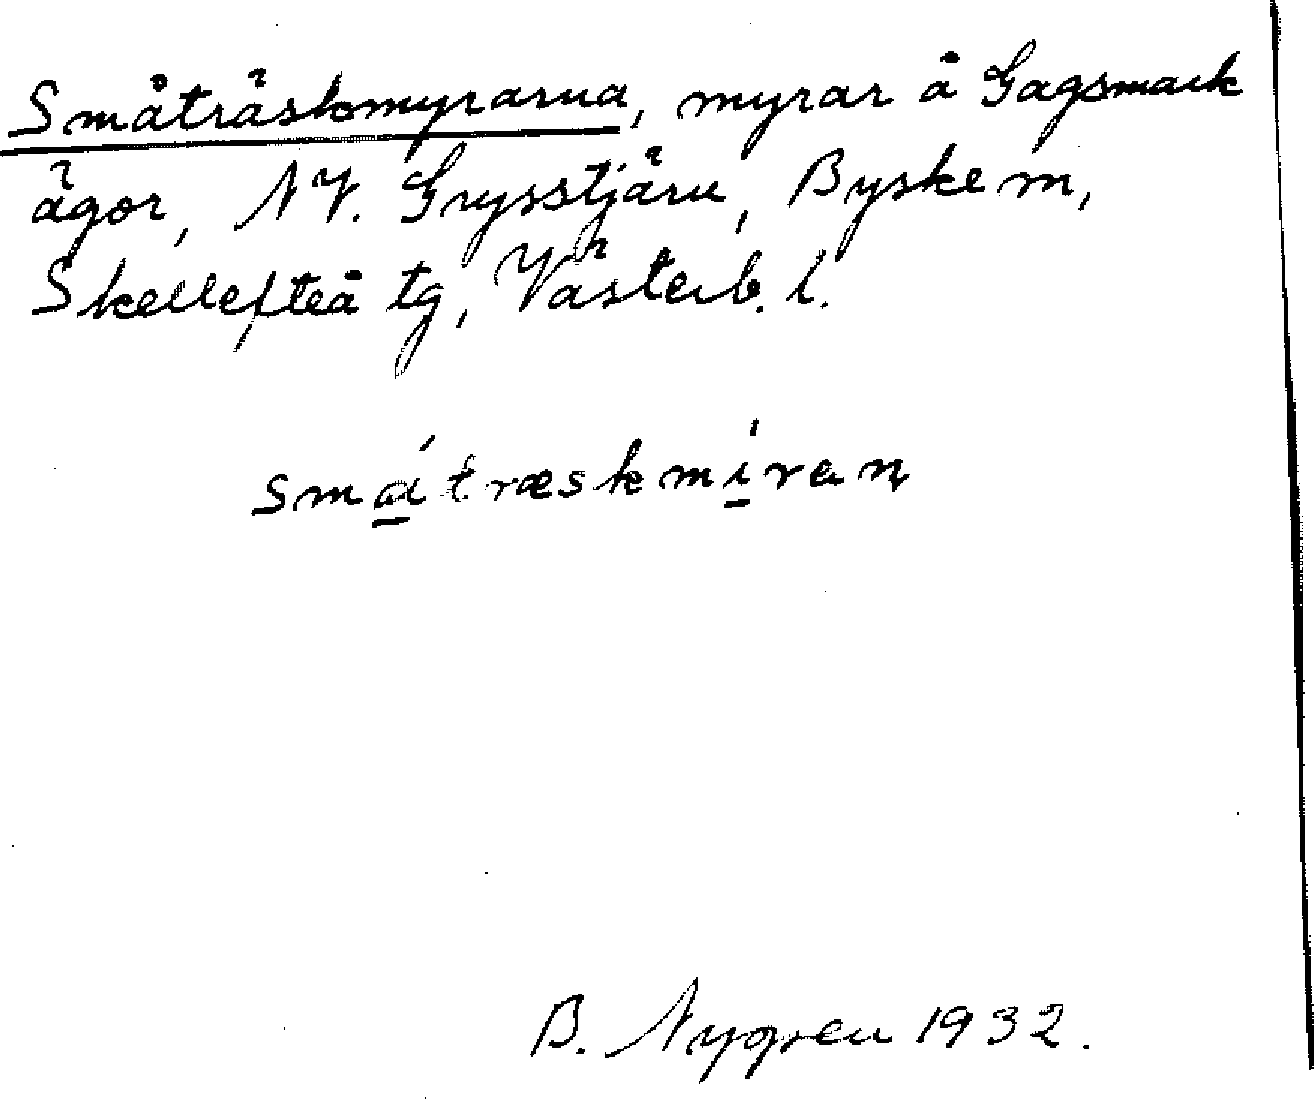 Småträskmyrarna, myrar å Gagsmark
ägor, NV. Grysstjärn, Byske m,
Skellefteå tg, Västerb. l.
småtræskmiran
B. Nygren 1932.